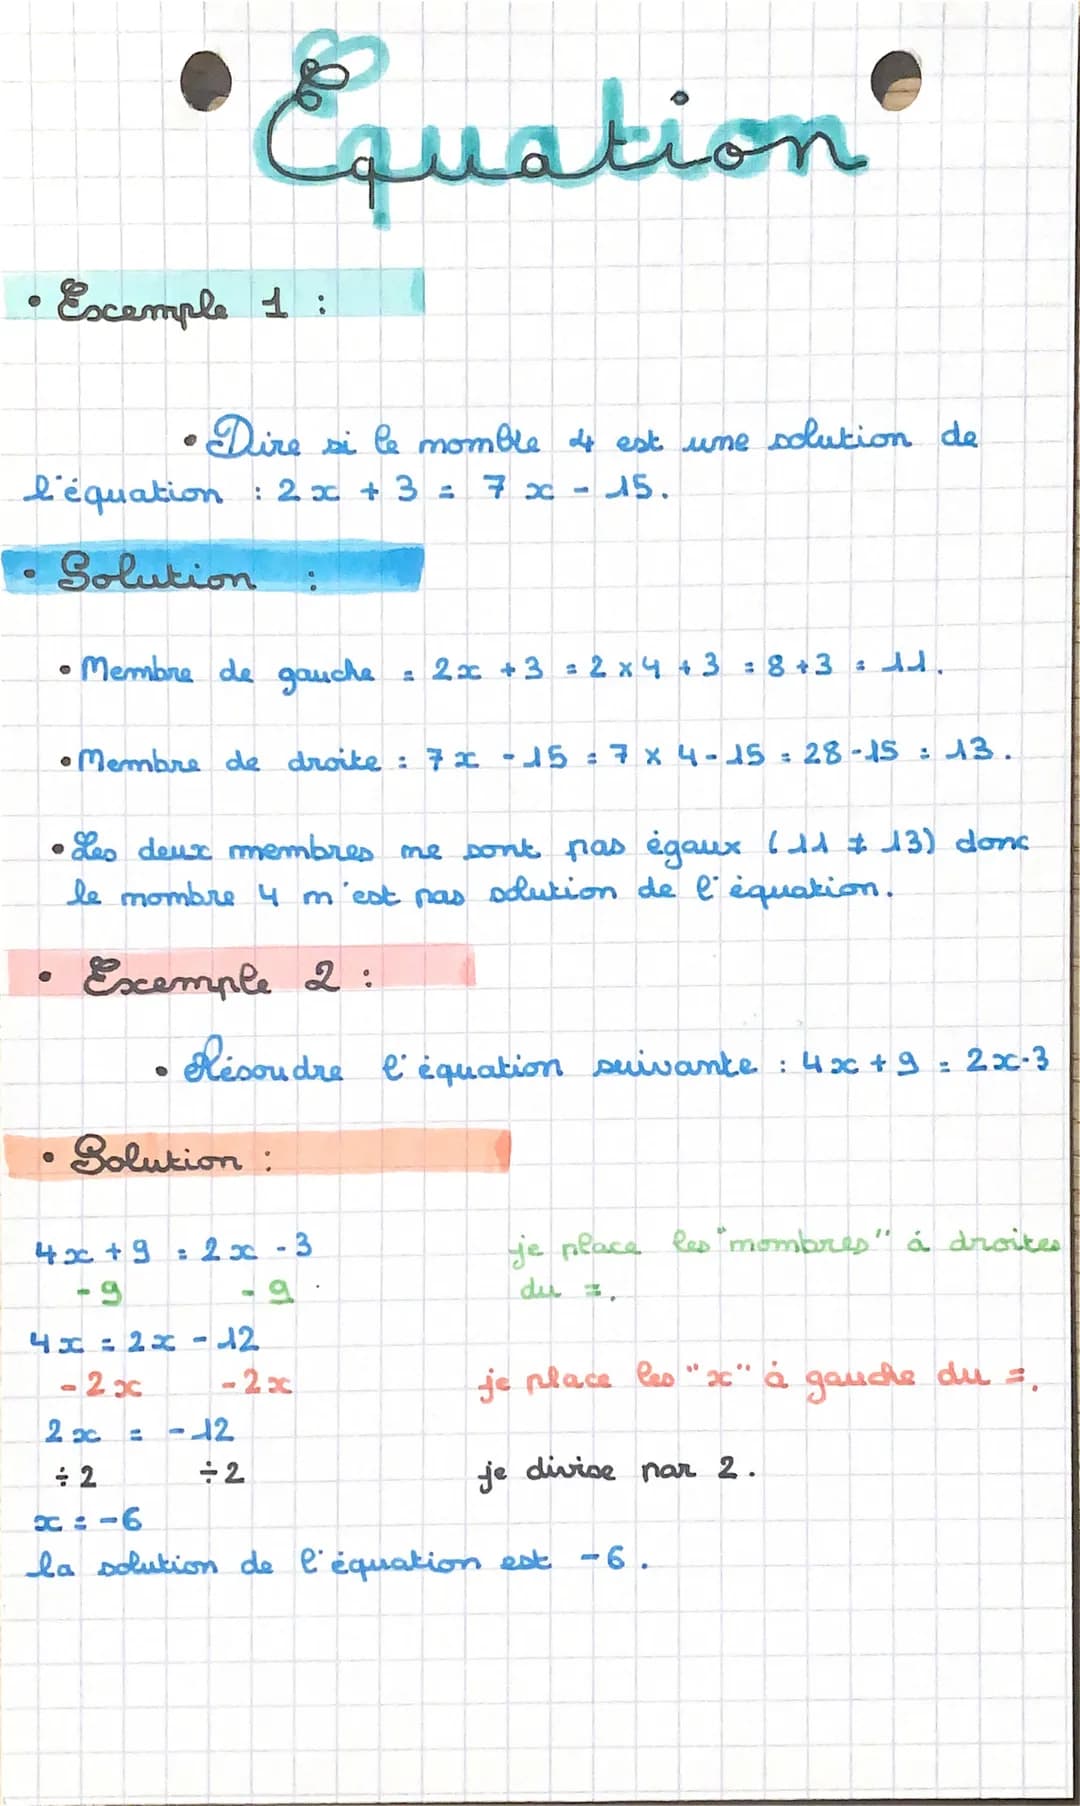 Équation
• Exemple 1 :
• Dire si le momble 4 est une solution de
l'équation : 2x + 3 = 7x - 15.
• Solution :
• Membre de gauche = 2x + 3 = 2 x 4 + 3 = 8 + 3 = 11.
• Membre de droite : 7x - 15 = 7 x 4 - 15 = 28 - 15 = 13.
• Les deux membres ne sont pas égaux (11 ≠ 13) donc
le nombre 4 n'est pas solution de l'équation.
• Exemple 2 :
• Résoudre l'équation suivante : 4x + 9 = 2x - 3
• Solution :
4x + 9 = 2x - 3 je place les "nombres" á droites
-9 -9 du =.
4x = 2x - 12
-2x -2x je place les "x" à gauche du =.
2x = -12
÷2 ÷2 je divise par 2.
x = -6
la solution de l'équation est -6.